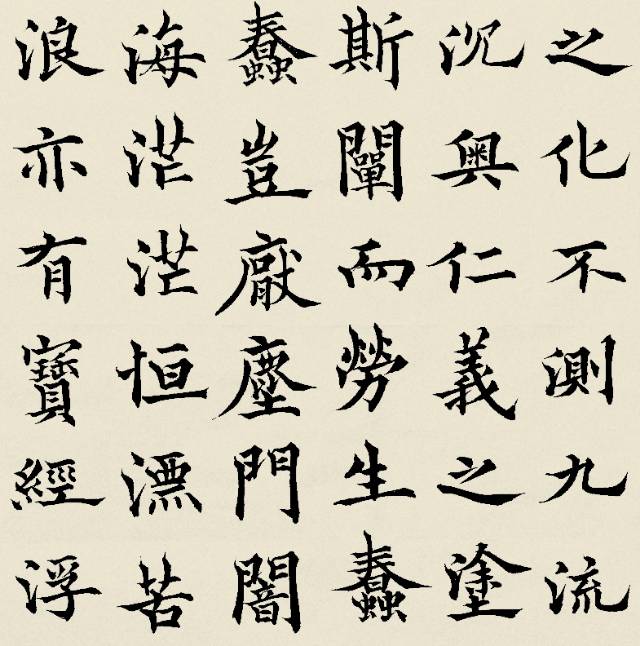 之化不測九流
沉奧仁義之塗
斯闡而勞生蠢
蠢豈厭塵門闇
海茫茫恒漂苦
浪亦有寶經浮